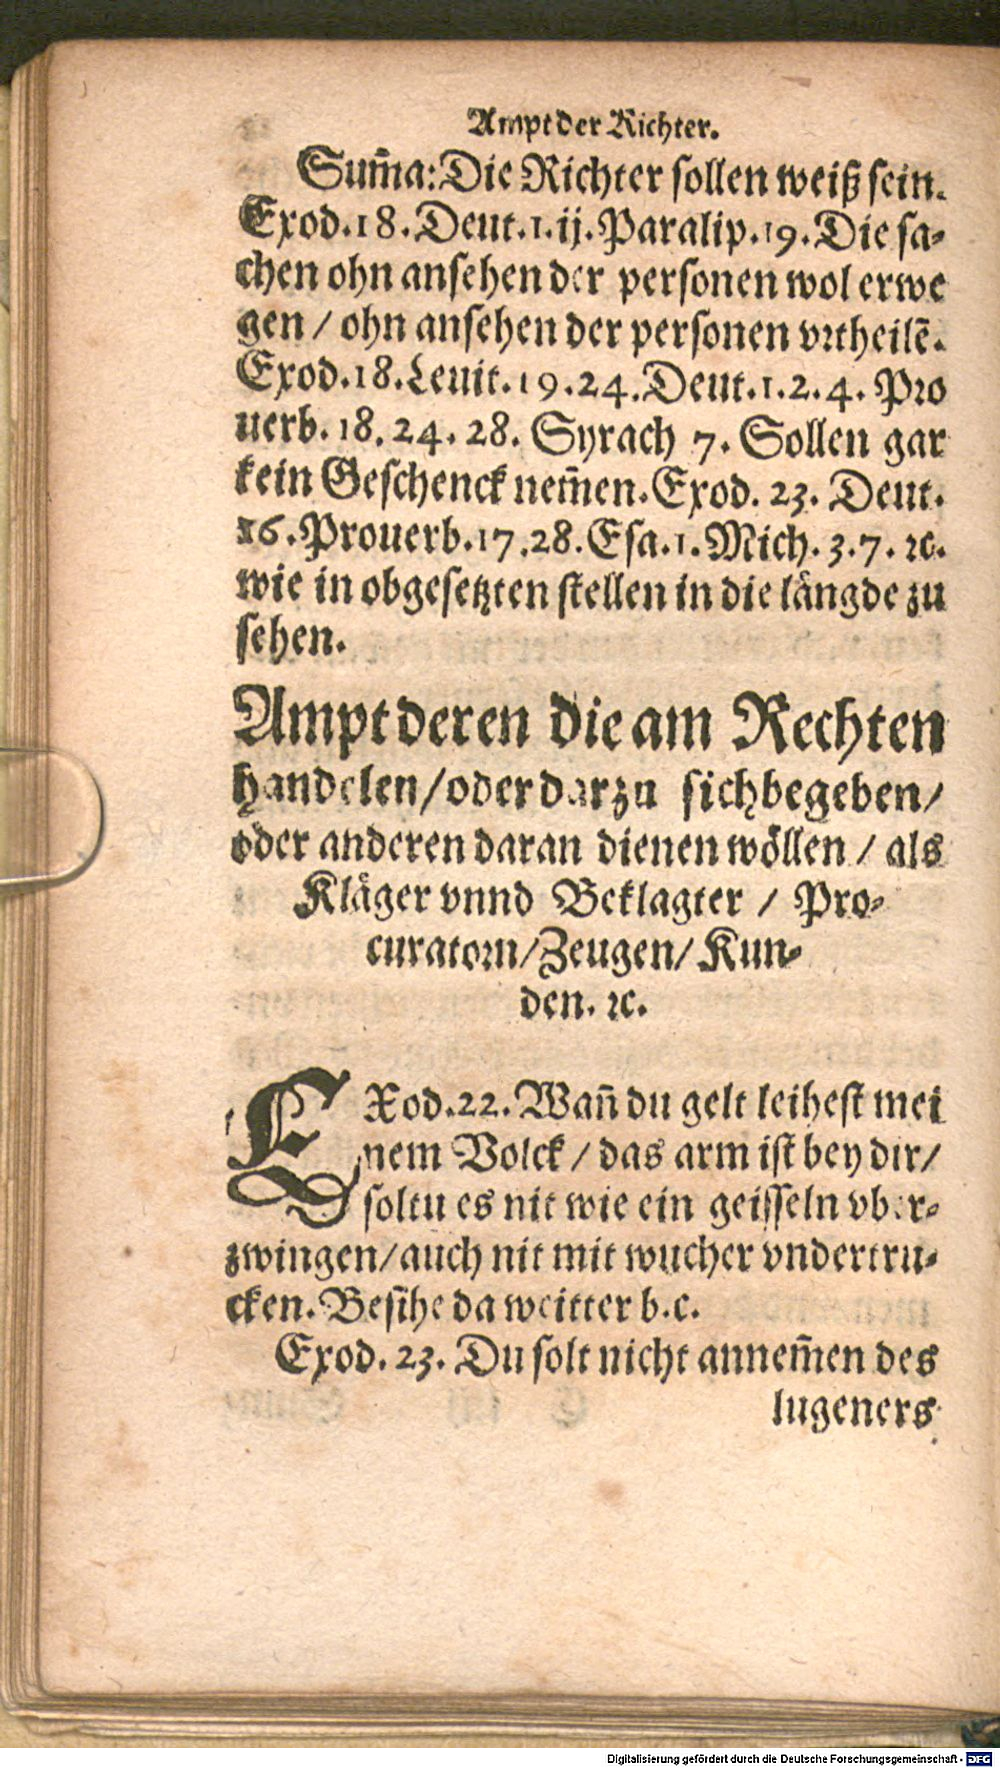 Ampt der Richter.
Sum̃a: Die Richter sollen weiß sein.
Exod. 18. Deut. 1. ij. Paralip. 19. Die sa-
chen ohn ansehen der personen wol erwe
gen / ohn ansehen der personen vrtheilẽ.
Exod. 18. Leuit. 19. 24. Deut. 1. 2. 4. Pro
uerb. 18. 24. 28. Syrach 7. Sollen gar
kein Geschenck nem̃en. Exod. 23. Deut.
16. Prouerb. 17. 28. Esa. 1. Mich. 3. 7. ꝛc.
wie in obgesetzten stellen in die längde zu
sehen.
Ampt deren die am Rechten
handelen / oder darzu sich begeben /
oder anderen daran dienen wöllen / als
Kläger vnnd Beklagter / Pro-
curatorn / Zeugen / Kun-
den. ꝛc.
EXod. 22. Wañ du gelt leihest mei
nem Volck / das arm ist bey dir /
soltu es nit wie ein geisseln vber-
zwingen / auch nit mit wucher vndertru-
cken. Besihe da weitter b. c.
Exod. 23. Du solt nicht annem̃en des
lugeners
Digitalisierung gefördert durch die Deutsche Forschungsgemeinschaft - DFG